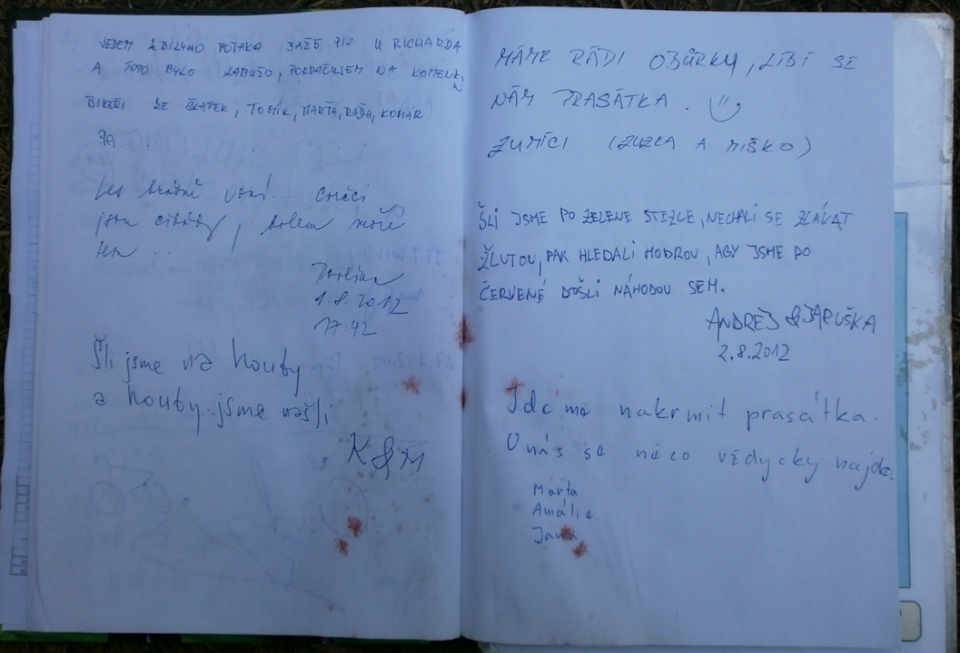 JEDEM Z BÍLÝHO POTOKA 3AŽŠ PIV U RICHARDA
A TOTO BYLO ZABUTO, POKRAČUJEM NA
BIKEŘI ZE ŠLAPEK, TOMÍK, MARTA, RÁĎA, KOMÁR
les krásně voní...
jsou cikády, kolem moře
Pavlína
1.8.2012
17:42
Šli jsme na houby
a houby jsme našli
K&M
MÁME RÁDI OBŮRKY, LÍBÍ SE
NÁM PRASÁTKA.
ZUMÍCI (ZUZCA A MIŠKO)
ŠLI JSME PO ZELENÉ STEZCE, NECHALI SE ZLÁKAT
ŽLUTOU, PAK HLEDALI MODROU, ABY JSME PO
ČERVENÉ DOŠLI NÁHODOU SEM.
ANDREJ & JARUŠKA
2.8.2012
Jdeme nakrmit prasátka.
U nás se něco vždycky najde.
Marta
Amálie
Jana